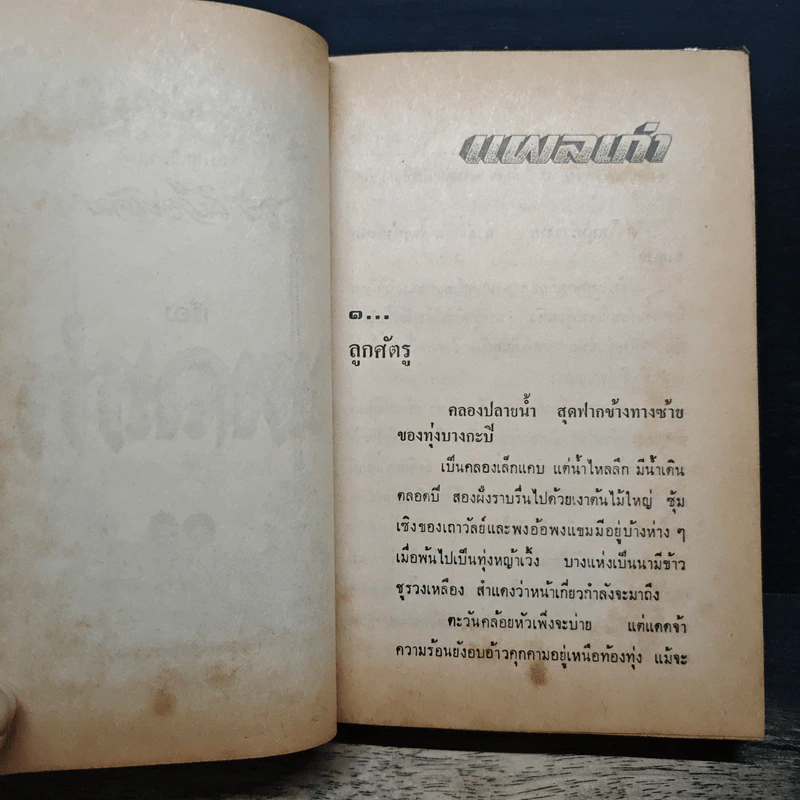 แผลเก่า
๑...
ลูกศัตรู
คลองปลายน้ำ สุดฟากข้างทางซ้าย
ของทุ่งบางกะปี
เป็นคลองเล็กแคบ แต่น้ำไหลลึก มีน้ำเดิน
ตลอดปี สองฝั่งราบรื่นไปด้วยเงาต้นไม้ใหญ่ ซุ้ม
เชิงของเถาวัลย์และพงอ้อพงแขมมีอยู่บ้างห่าง ๆ
เมื่อพ้นไปเป็นทุ่งหญ้าเวิ้ง บางแห่งเป็นนามีข้าว
ชูรวงเหลือง สำแดงว่าหน้าเกี่ยวกำลังจะมาถึง
ตะวันคล้อยหัวเพิ่งจะบ่าย แต่แดดจ้า
ความร้อนยังอบอ้าวคุกคามอยู่เหนือท้องทุ่ง แม้จะ